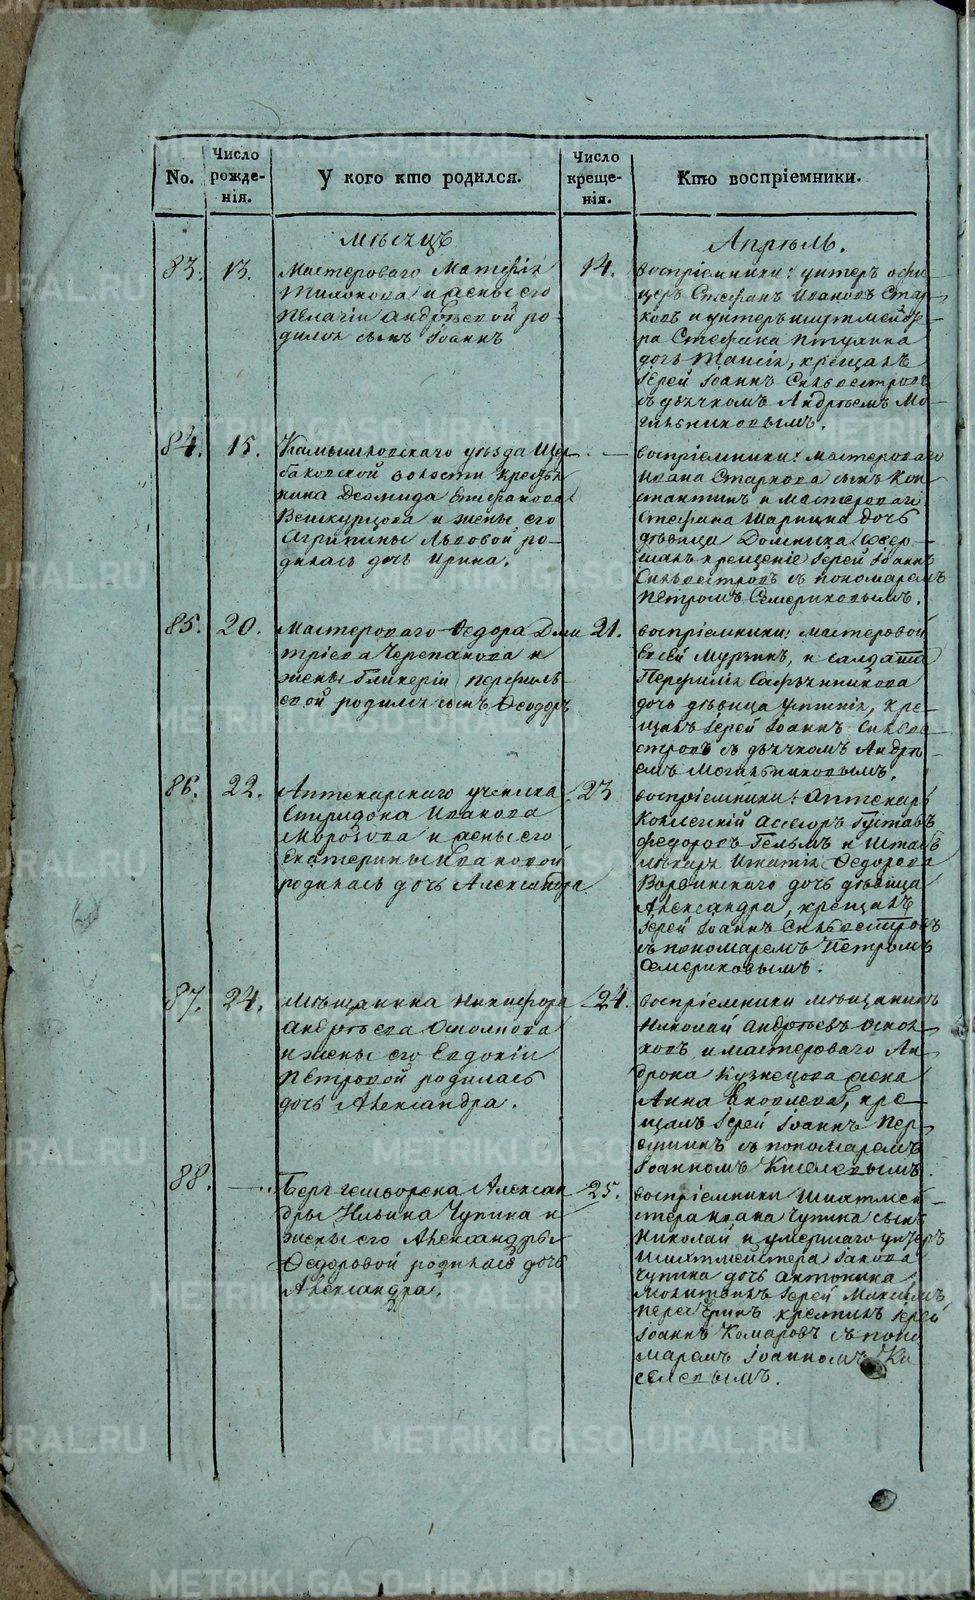 No.
Число рожде-нія.
У кого кто родился.
Число креще-нія.
Кто воспріемники.
Мѣсяцъ
Апрѣль.
83.
13.
Мастероваго Матфія
Тихонова и жены его
Пелагіи Андрѣевой ро-
дился сынъ Іоаннъ
14.
воспріемники: унтеръ офи-
церъ Стефанъ Ивановъ Стар-
ковъ и унтеръ шихтмейсте-
ра Стефана Птухина
дочь Таисія, крещалъ
Іерей Іоаннъ Сильвестровъ
съ дьячкомъ Андрѣемъ Мо-
гильниковымъ.
84.
15.
Камышловскаго уѣзда Щер-
баковской волости крестья-
нина Деомида Епифанова
и жены его
Агрипины Львовой ро-
дилась дочь Ирина.
—
воспріемники: мастероваго
Ивана Старкова сынъ Кон-
стантинъ и мастероваго
Стефана Шарипина дочь
дѣвица Домника совер-
шалъ крещеніе Іерей Іоаннъ
Сильвестровъ съ пономаремъ
Петромъ Семериковымъ.
85.
20.
Мастероваго Ѳедора Дми
тріева Черепанова и
жены Гликеріи Перфиль-
евой родился сынъ Ѳеодоръ
21.
воспріемники: мастеровой
Евсей Мурзинъ, и салдата
Перфилія
дочь дѣвица кре-
щалъ Іерей Іоаннъ Сильве-
стровъ съ дьячкомъ Андрѣ-
емъ Могильниковымъ.
86.
22.
Аптекарскаго ученика
Спиридона Иванова
Морозова и жены его
Екатерины Ивановой
родилась дочь Александра
23
воспріемники: Аптекарь
Колежскій Асесоръ Густавъ
Федоровъ Гельмъ и Штабъ
лѣкаря Игнатія Ѳедорова
Ворвинскаго дочь дѣвица
Александра, крещалъ
Іерей Іоаннъ Сильвестровъ
съ пономаремъ Петромъ
Семериковымъ.
87.
24.
Мѣщанина Никифора
Андрѣева
и жены его Евдокіи
Петровой родилась
дочь Александра.
24.
воспріемники мѣщанинъ
Николай Андрѣевъ
и мастероваго Ан-
дрона Кузнецова жена
Анна Яковлева, кре-
щалъ Іерей Іоаннъ Пер-
съ пономаремъ
Іоанномъ Киселевымъ.
88.
—
Берггешворена Алексан-
дры Ильина Чупина и
жены его Александры
Ѳедоровой родилась дочь
Александра.
25.
воспріемники Шихтмей-
стера Ивана Чупина сынъ
Николай и умершаго унтеръ
шихтмейстера Іакова
Чупина дочь Антонина
Молитвилъ Іерей Михаилъ
крестилъ Іерей
Іоаннъ Комаровъ съ поно
маремъ Іоанномъ Ки
селевымъ.
METRIKI.GASO-URAL.RU